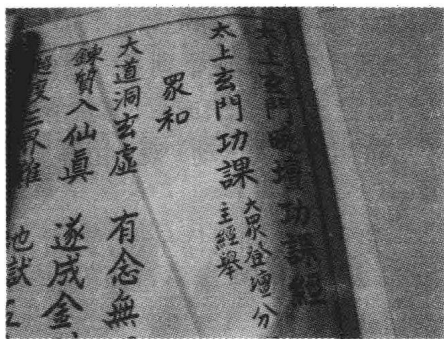 太上玄門晚壇功課經
太上玄門功課 大眾登壇分
主經舉
眾和
大道洞玄虛 有念無
鍊質入仙真 遂成金
超度三界難 地獄五